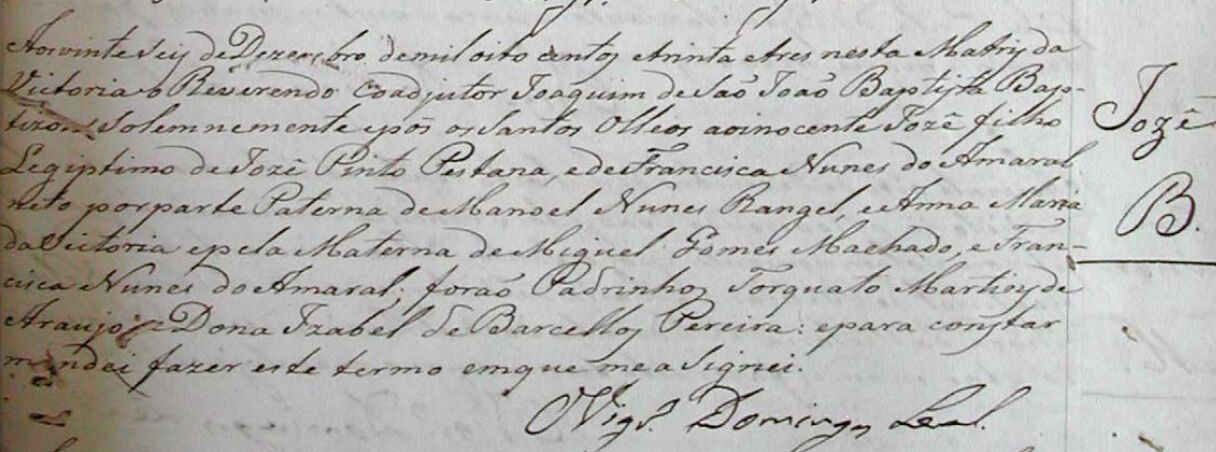 Aos vinte seis de Dezembro de mil oito centos e trinta e tres nesta Matris da
Victoria o Reverendo Coadjutor Joaquim de São João Baptista Bap-
tizou Solemnemente e pôs os Santos Olleos ao inocente Jozê filho
Legiptimo de Jozê Pinto Pestana, e de Francisca Nunes do Amaral
neto por parte Paterna de Manoel Nunes Rangel, e Anna Maria
da Victoria e pela Materna de Miguel Gomes Machado, e Fran-
cisca Nunes do Amaral; forão Padrinhos Torquato Martins de
Araujo, e Dona Izabel de Barcellos Pereira: e para constar
mandei fazer este termo em que me aSignei.
O Vigr.º Domingos Leal.
Jozê
B.